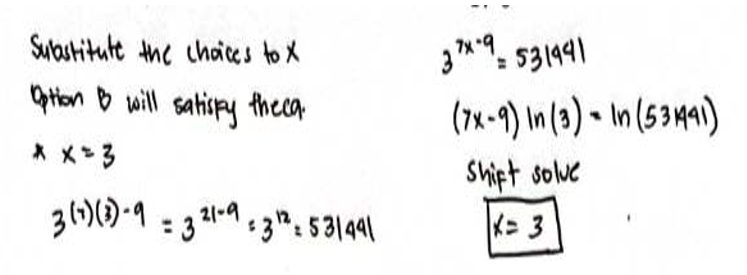 Substitute the choices to X
Option B will satisfy the eq.
* x = 3
3^(7)(3)-9 = 3^21-9 = 3^12 = 531441
3^7x-9 = 531441
(7x-9) ln(3) = ln(531441)
Shift solve
x = 3